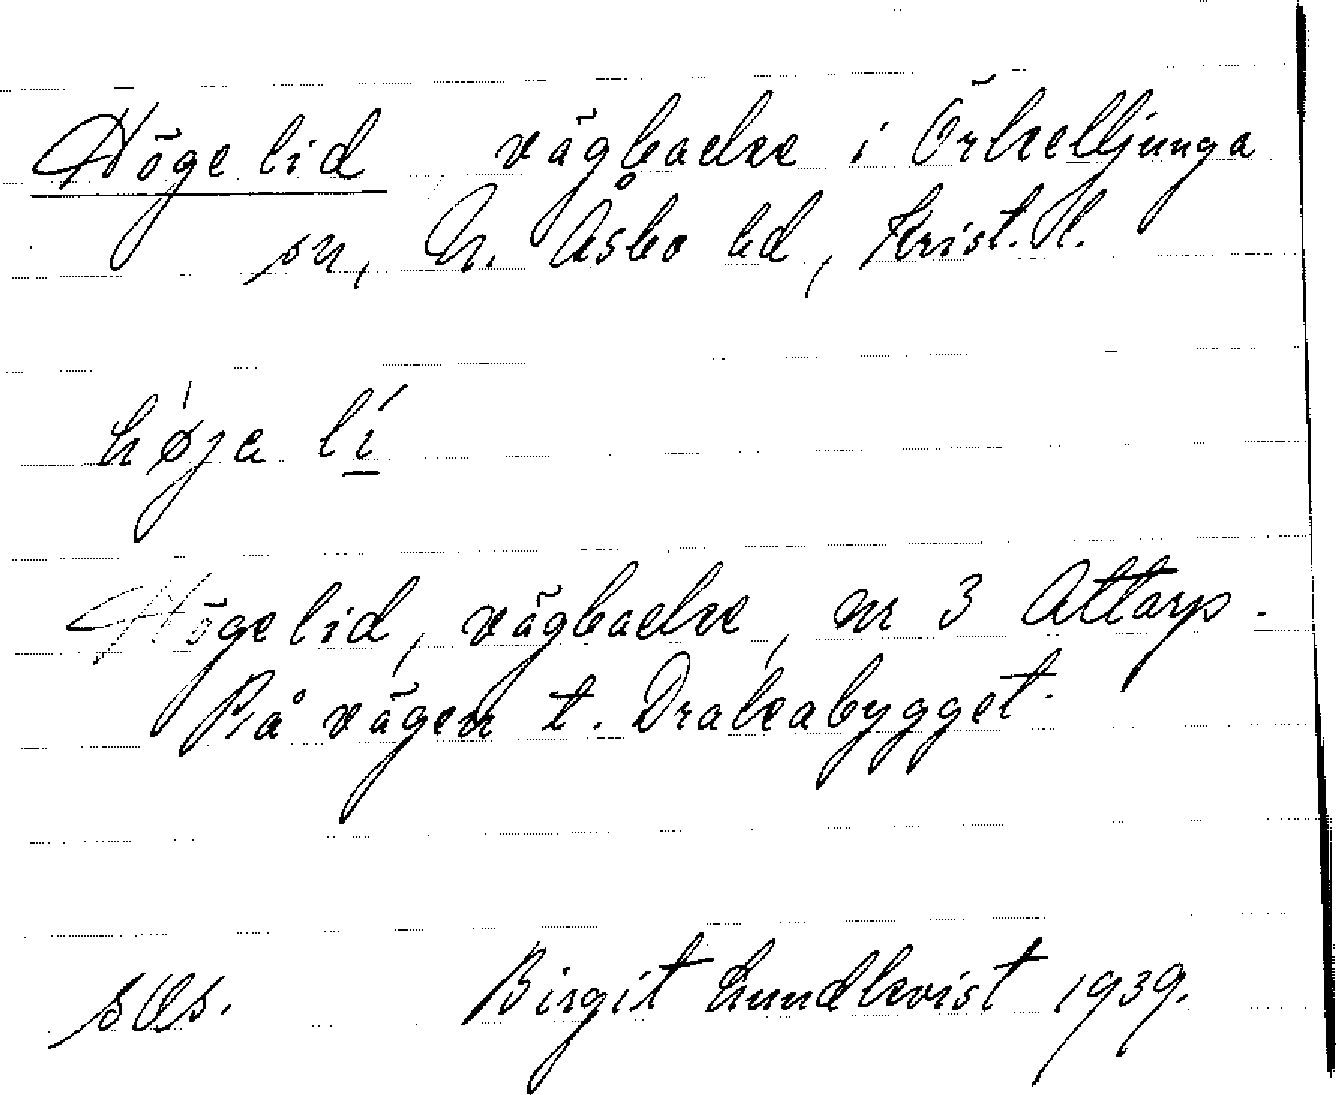 Högelid vägbacke i Örkelljunga
sn, N. Åsbo hd, Krist. l.
høja lí
Högelid, vägbacke, nr 3 Attarp.
På vägen t. Drakabygget.
Birgit Lundkvist 1939.